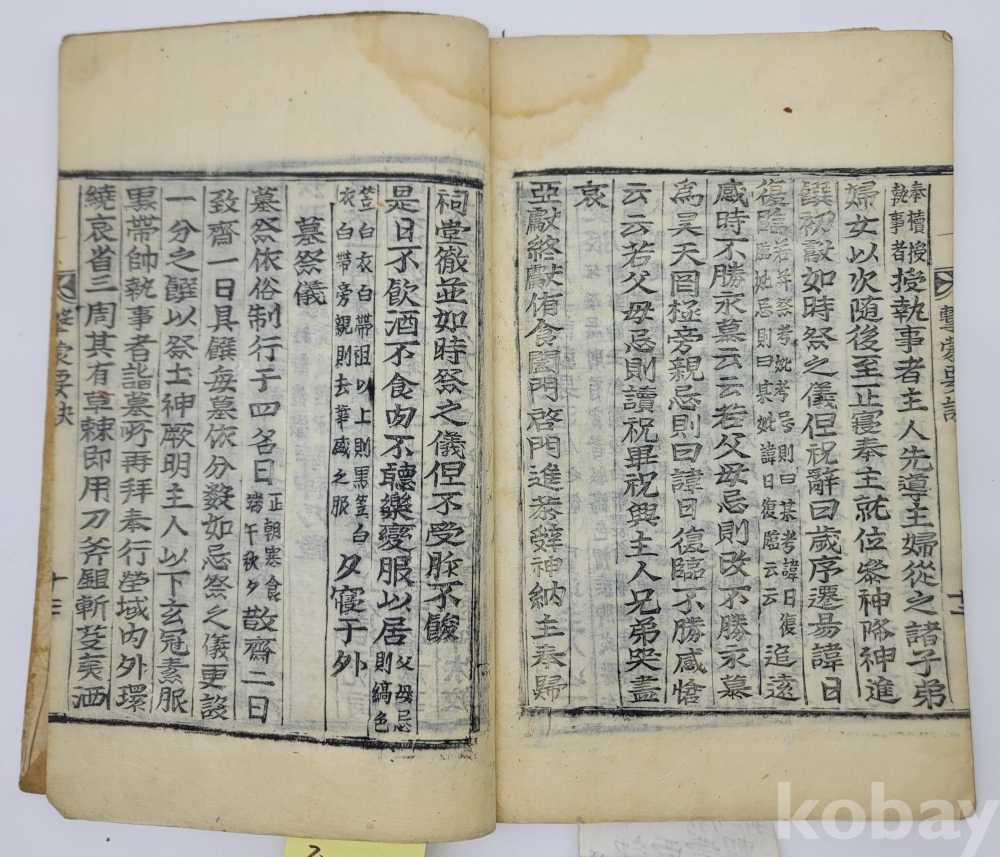 擊蒙要訣
十二
奉櫝授執事者授執事者主人先導主婦從之諸子弟
婦女以次隨後至正寢奉主就位叅神降神進
饌初獻如時祭之儀但祝辭曰歲序遷易諱日
復臨若年祭考妣考忌則曰某考諱日復臨妣忌則曰某妣諱日復臨云云追遠
感時不勝永慕云云若父母忌則改不勝永慕
爲昊天罔極旁親忌則曰諱日復臨不勝感愴
云云若父母忌則讀祝畢祝興主人兄弟哭盡
哀
亞獻終獻侑食闔門啓門進茶辤神納主奉歸
祠堂徹並如時祭之儀但不受胙不餕
是日不飮酒不食肉不聽樂變服以居父母忌則縞色
笠白衣白帶祖以上則黑笠白衣白帶旁親則去華盛之服夕寢于外
墓祭儀
墓祭依俗制行于四名日正朝寒食端午秋夕散齋二日
致齋一日具饌每墓依分數如忌祭之儀更設
一分之饌以祭土神厥明主人以下玄冠素服
黑帶帥執事者詣墓所再拜奉行塋域內外環
繞哀省三周其有草棘即用刀斧鉏斬芟夷洒
擊蒙要訣
十三
kobay